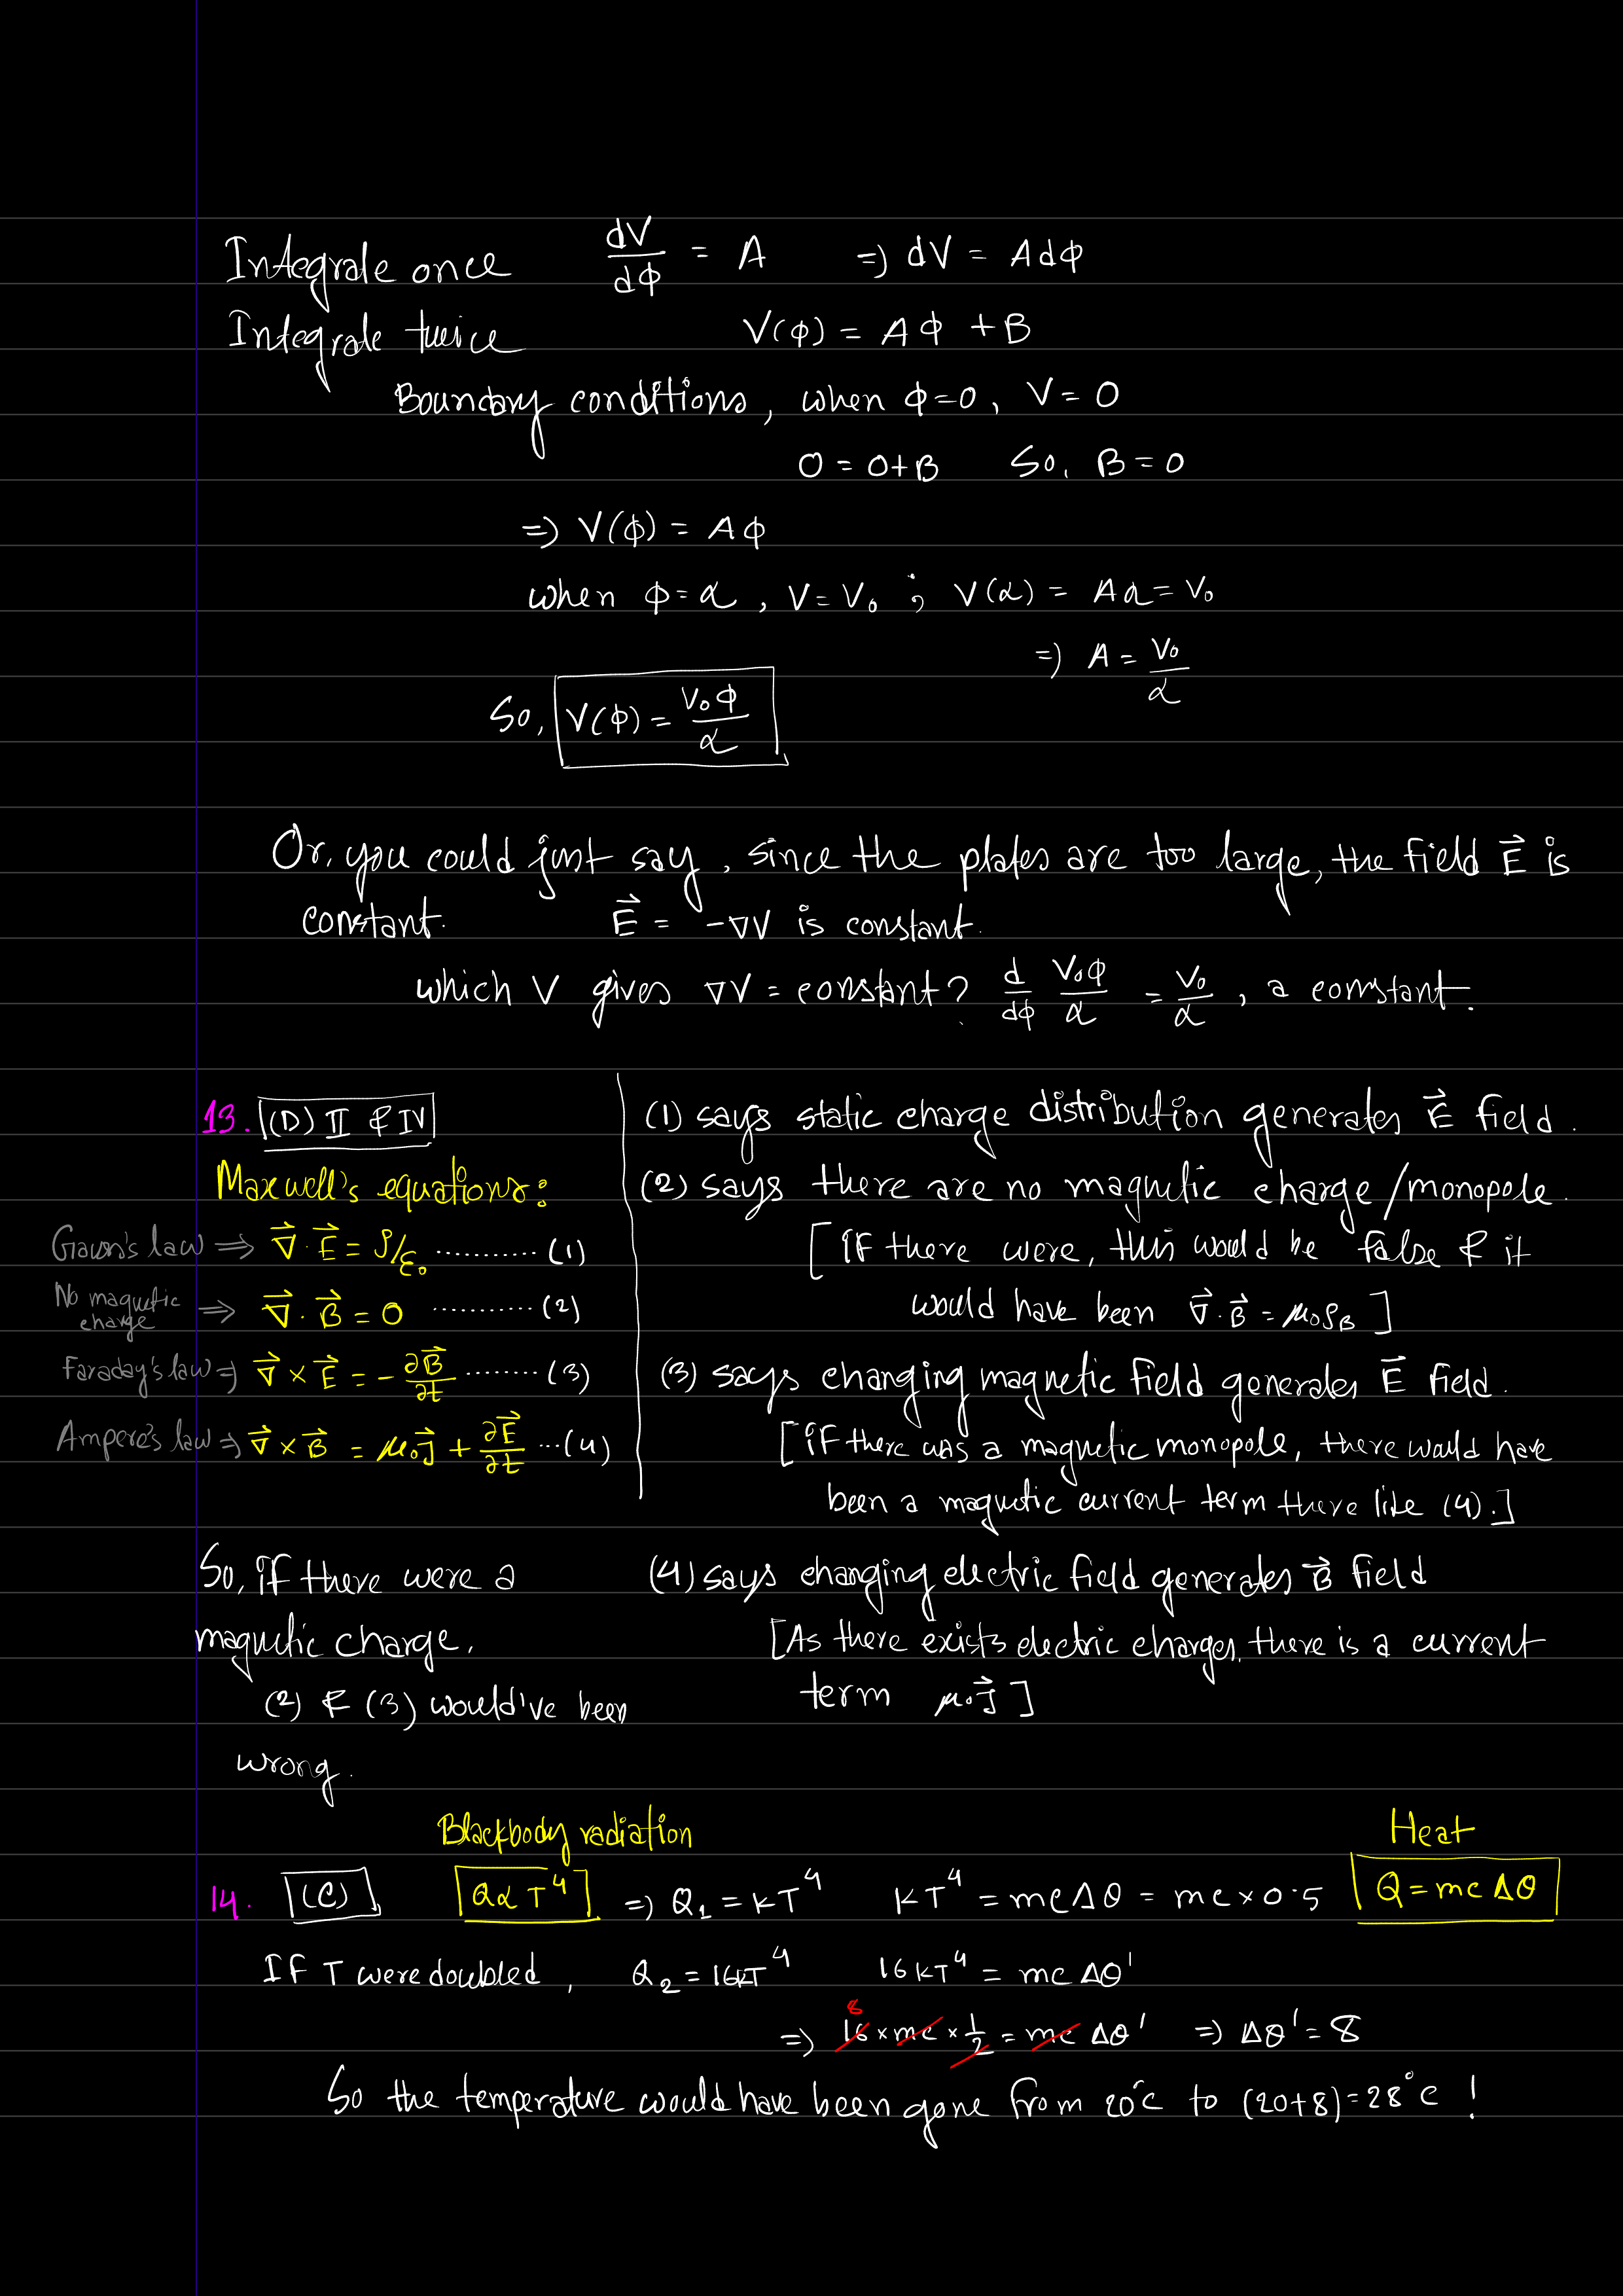 Integrate once dV/dϕ = A => dV = Adϕ
Integrate twice V(ϕ) = Aϕ + B
Boundary conditions, when ϕ=0, V=0
0 = 0+B So, B=0
=> V(ϕ) = Aϕ
when ϕ=α, V=V₀ ; V(α) = Aα = V₀
=> A = V₀/α
So, V(ϕ) = V₀ϕ/α
Or, you could just say, since the plates are too large, the field E⃗ is
constant. E⃗ = -∇V is constant.
which V gives ∇V = constant? d/dϕ V₀ϕ/α = V₀/α, a constant.
13. (D) II & IV
Maxwell's equations:
Gauss's law => ∇⃗·E⃗ = ρ/ε₀ ........... (1)
No magnetic charge => ∇⃗·B⃗ = 0 ........... (2)
Faraday's law => ∇⃗×E⃗ = -∂B⃗/∂t ........ (3)
Ampere's law => ∇⃗×B⃗ = μ₀J⃗ + ∂E⃗/∂t ...(4)
So, if there were a
magnetic charge,
(2) & (3) would've been
wrong.
(1) says static charge distribution generates E⃗ field.
(2) says there are no magnetic charge/monopole.
[If there were, this would be false & it
would have been ∇⃗·B⃗ = μ₀ρ_B]
(3) says changing magnetic field generates E⃗ field.
[if there was a magnetic monopole, there would have
been a magnetic current term there like (4).]
(4) says changing electric field generates B⃗ field
[As there exists electric charges, there is a current
term μ₀J⃗]
Blackbody radiation Heat
14. (C) Q∝T⁴ => Q₁ = KT⁴ KT⁴ = mcΔθ = mc×0.5 Q = mcΔθ
If T were doubled, Q₂ = 16KT⁴ 16KT⁴ = mcΔθ'
8
=> 16 × mc × 1/2 = mc Δθ' => Δθ' = 8
So the temperature would have been gone from 20°C to (20+8) = 28°C !